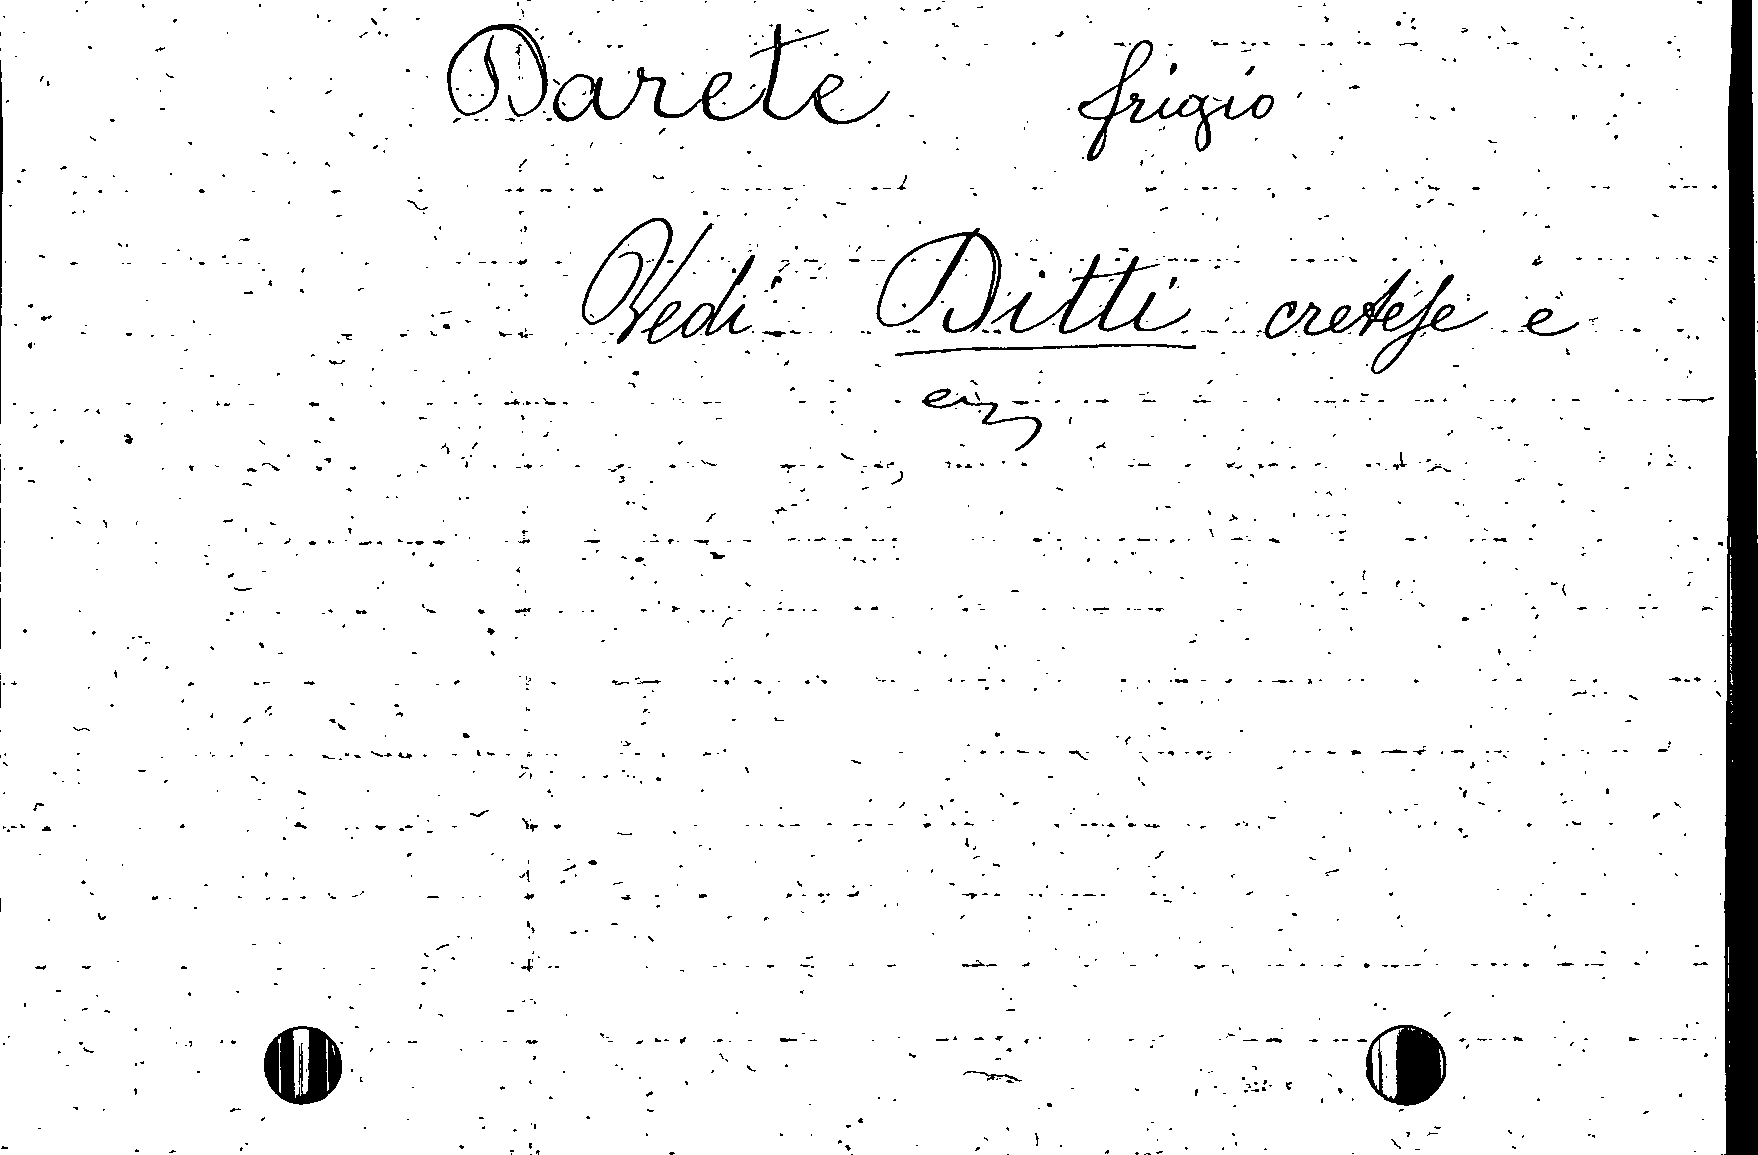 Darete frigio
Vedi Ditti cretese e